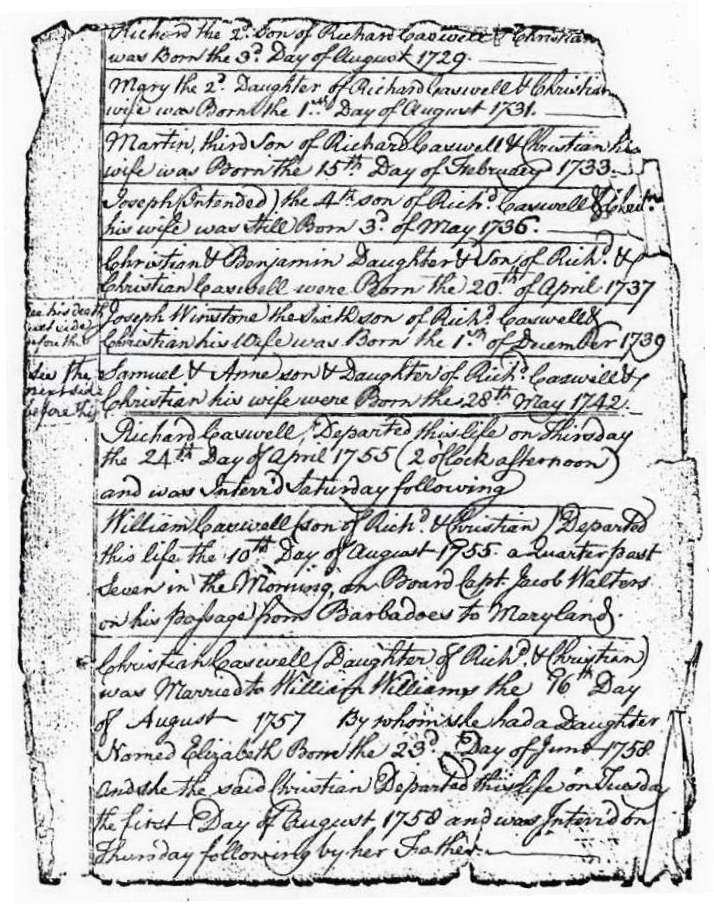 Richard the 2d. Son of Richard Caswell & Christian
was Born the 3d. Day of August 1729.
Mary the 2d. Daughter of Richard Caswell & Christian
wife was Born the 1st. Day of August 1731.
Martin, third Son of Richard Caswell & Christian his
wife was Born the 15th Day of February 1733.
Joseph (Intended) the 4th son of Richd. Caswell &
his wife was still Born 3d. of May 1736.
Christian & Benjamin Daughter & Son of Richd. &
Christian Caswell were Born the 20th of April 1737
see his death
before this
Joseph Winstone the sixth son of Richd. Caswell &
Christian his Wife was Born the 1st of December 1739
See the
next side
before this
Samuel & Anne son & Daughter of Richd. Caswell &
Christian his wife were Born the 28th May 1742.
Richard Caswell, Departed this life on Thursday
the 24th Day of April 1755 (2 oClock afternoon)
and was Interr'd Saturday following
William Caswell (son of Richd. & Christian) Departed
this life the 10th Day of August 1755. a Quarter past
Seven in the Morning, on Board Capt. Jacob Walters
on his passage from Barbadoes to Maryland.
Christian Caswell (Daughter of Richd. & Christian)
was Married to William Williams the 16th Day
of August 1757 By whom she had a Daughter
Named Elizabeth Born the 23d. Day of June 1758
and she the said Christian Departed this life on Tuesday
the first Day of August 1758 and was Interrd on
Thursday following by her Father.